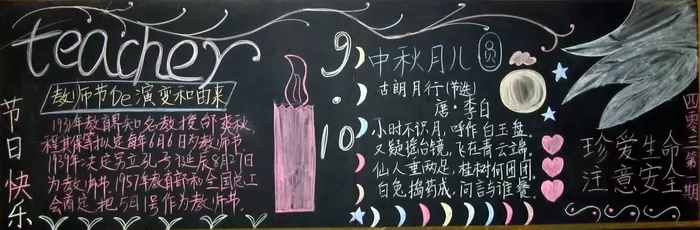 teacher
教师节De演变和由来
1931年教育界知名教授邰爽秋、
程其保等拟定每年6月6日为教师节.
1939年决定另立孔子诞辰8月27日
为教师节. 1957年教育部和全国总工
会商定,把5月1号作为教师节.
节日快乐
9.10
中秋月儿圆
古朗月行(节选)
唐·李白
小时不识月,呼作白玉盘.
又疑瑶台镜,飞在青云端.
仙人垂两足,桂树何团团.
白兔捣药成,问言与谁餐.
珍爱生命
注意安全